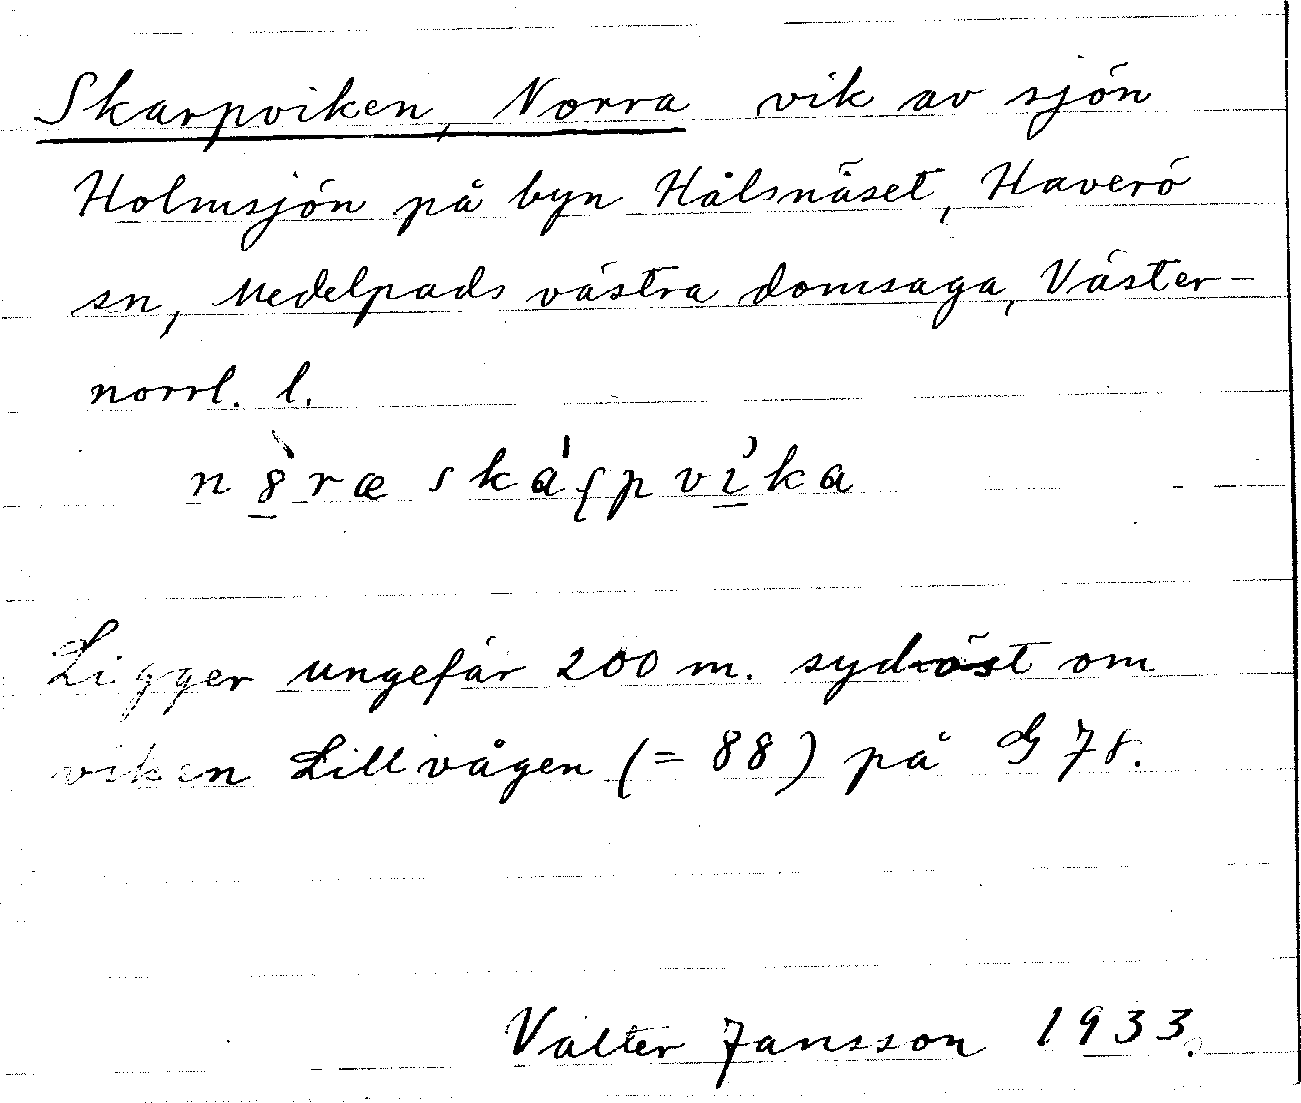 Skarpviken, Norra vik av sjön
Holmsjön på byn Hålsnäset, Haverö
sn, Medelpads västra domsaga, Väster-
norrl. l.
Ligger ungefär 200 m. sydöst om
viken Lillvågen (= 88) på G 78.
Valter Jansson 1933.